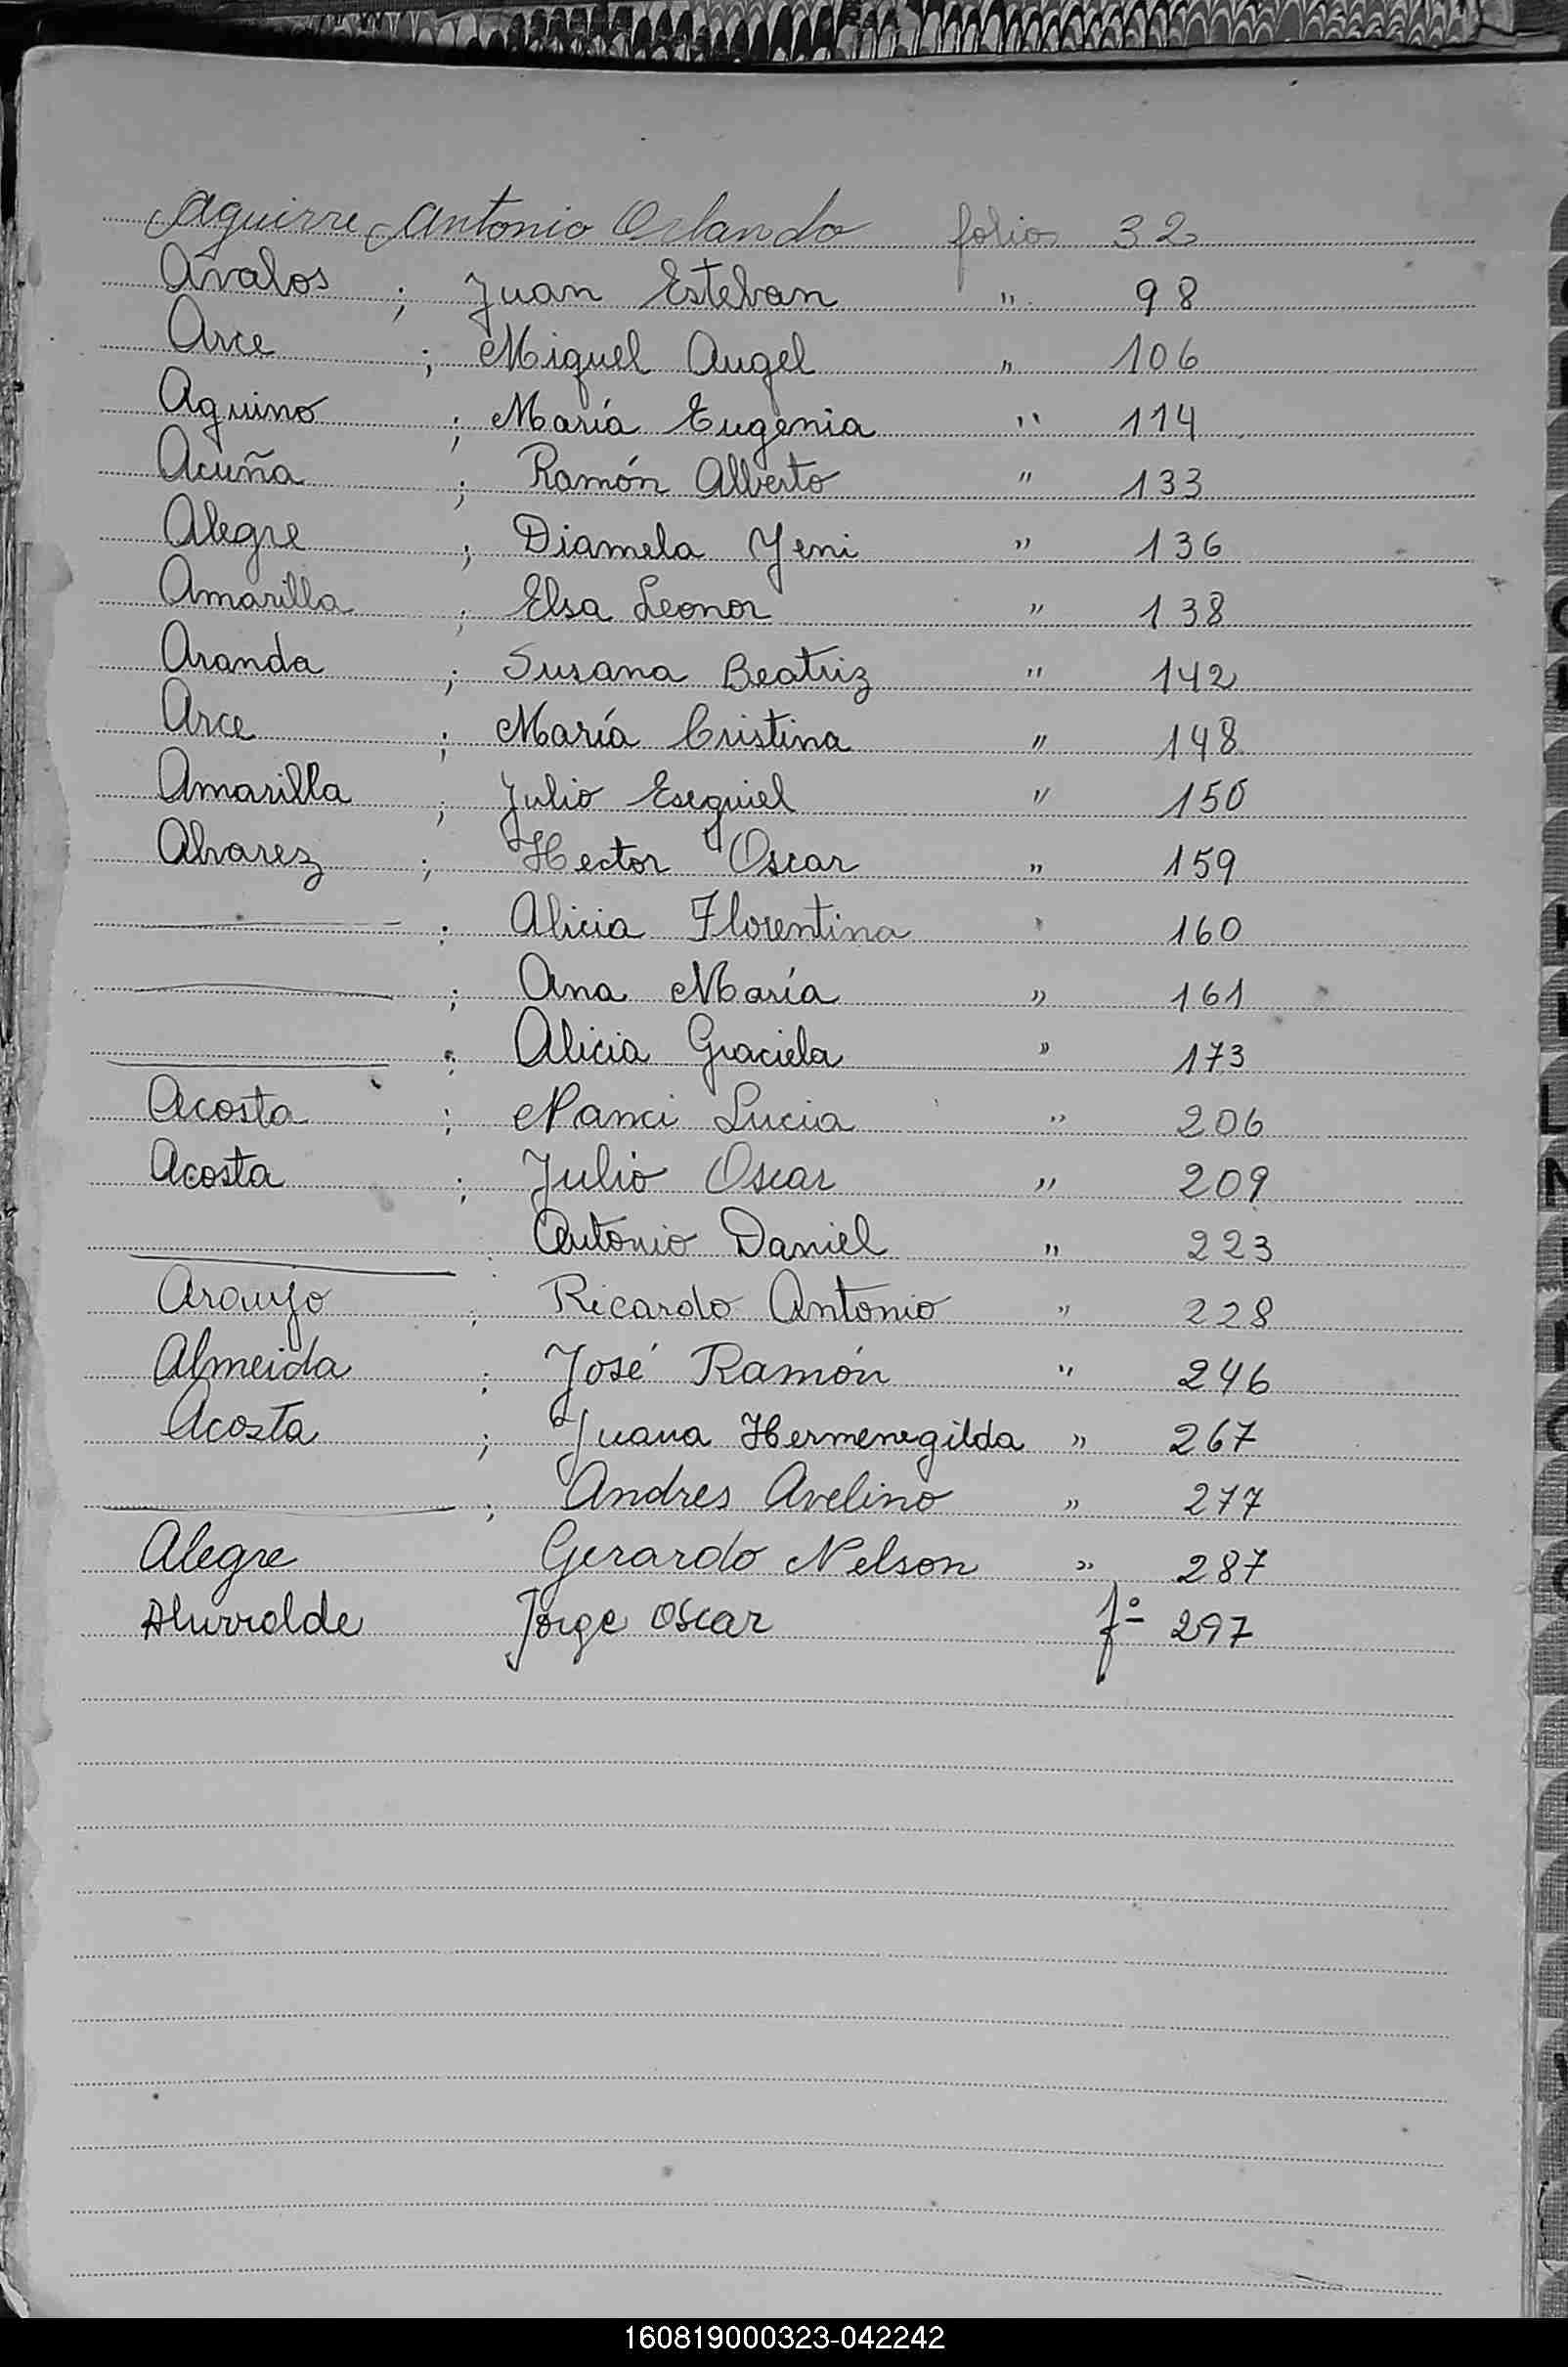 Aguirre Antonio Orlando folio 32
Avalos ; Juan Esteban " 98
Arce ; Miguel Angel " 106
Aquino ; María Eugenia " 114
Acuña ; Ramón Alberto " 133
Alegre ; Diamela Yeni " 136
Amarilla ; Elsa Leonor " 138
Aranda ; Susana Beatriz " 142
Arce ; María Cristina " 148
Amarilla ; Julio Esequiel " 150
Alvarez ; Hector Oscar " 159
—— ; Alicia Florentina " 160
—— ; Ana María " 161
—— ; Alicia Graciela " 173
Acosta ; Nanci Lucia " 206
Acosta ; Julio Oscar " 209
—— ; Antonio Daniel " 223
Araujo ; Ricardo Antonio " 228
Almeida ; José Ramón " 246
Acosta ; Juana Hermenegilda " 267
—— ; Andres Avelino " 277
Alegre Gerardo Nelson " 287
Jorge Oscar fº 297
160819000323-042242